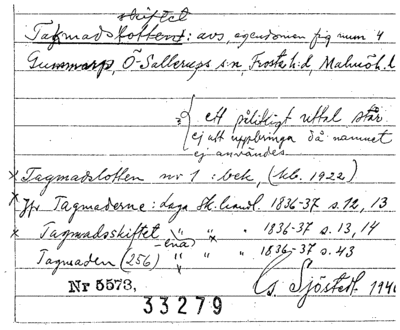 skiftet
Tagmadslotten: avs, egendomen fig num 4
Gummarp, Ö-Sallerups sn, Frosta h:d, Malmöh. l
ett pålitligt uttal står
ej att uppbringa då namnet
ej användes
x Tagmadslotten nr 1 : bek, (kb. 1922)
x Jfr Tagmaderne: laga sk. handl. 1836-37 s. 12, 13
x Tagmadsskiftet " " " 1836-37 s. 13, 14
-ena)
Tagmaden (256) " " " 1836-37 s. 43
Nr 5573,
G. Sjöstedt. 194
33279